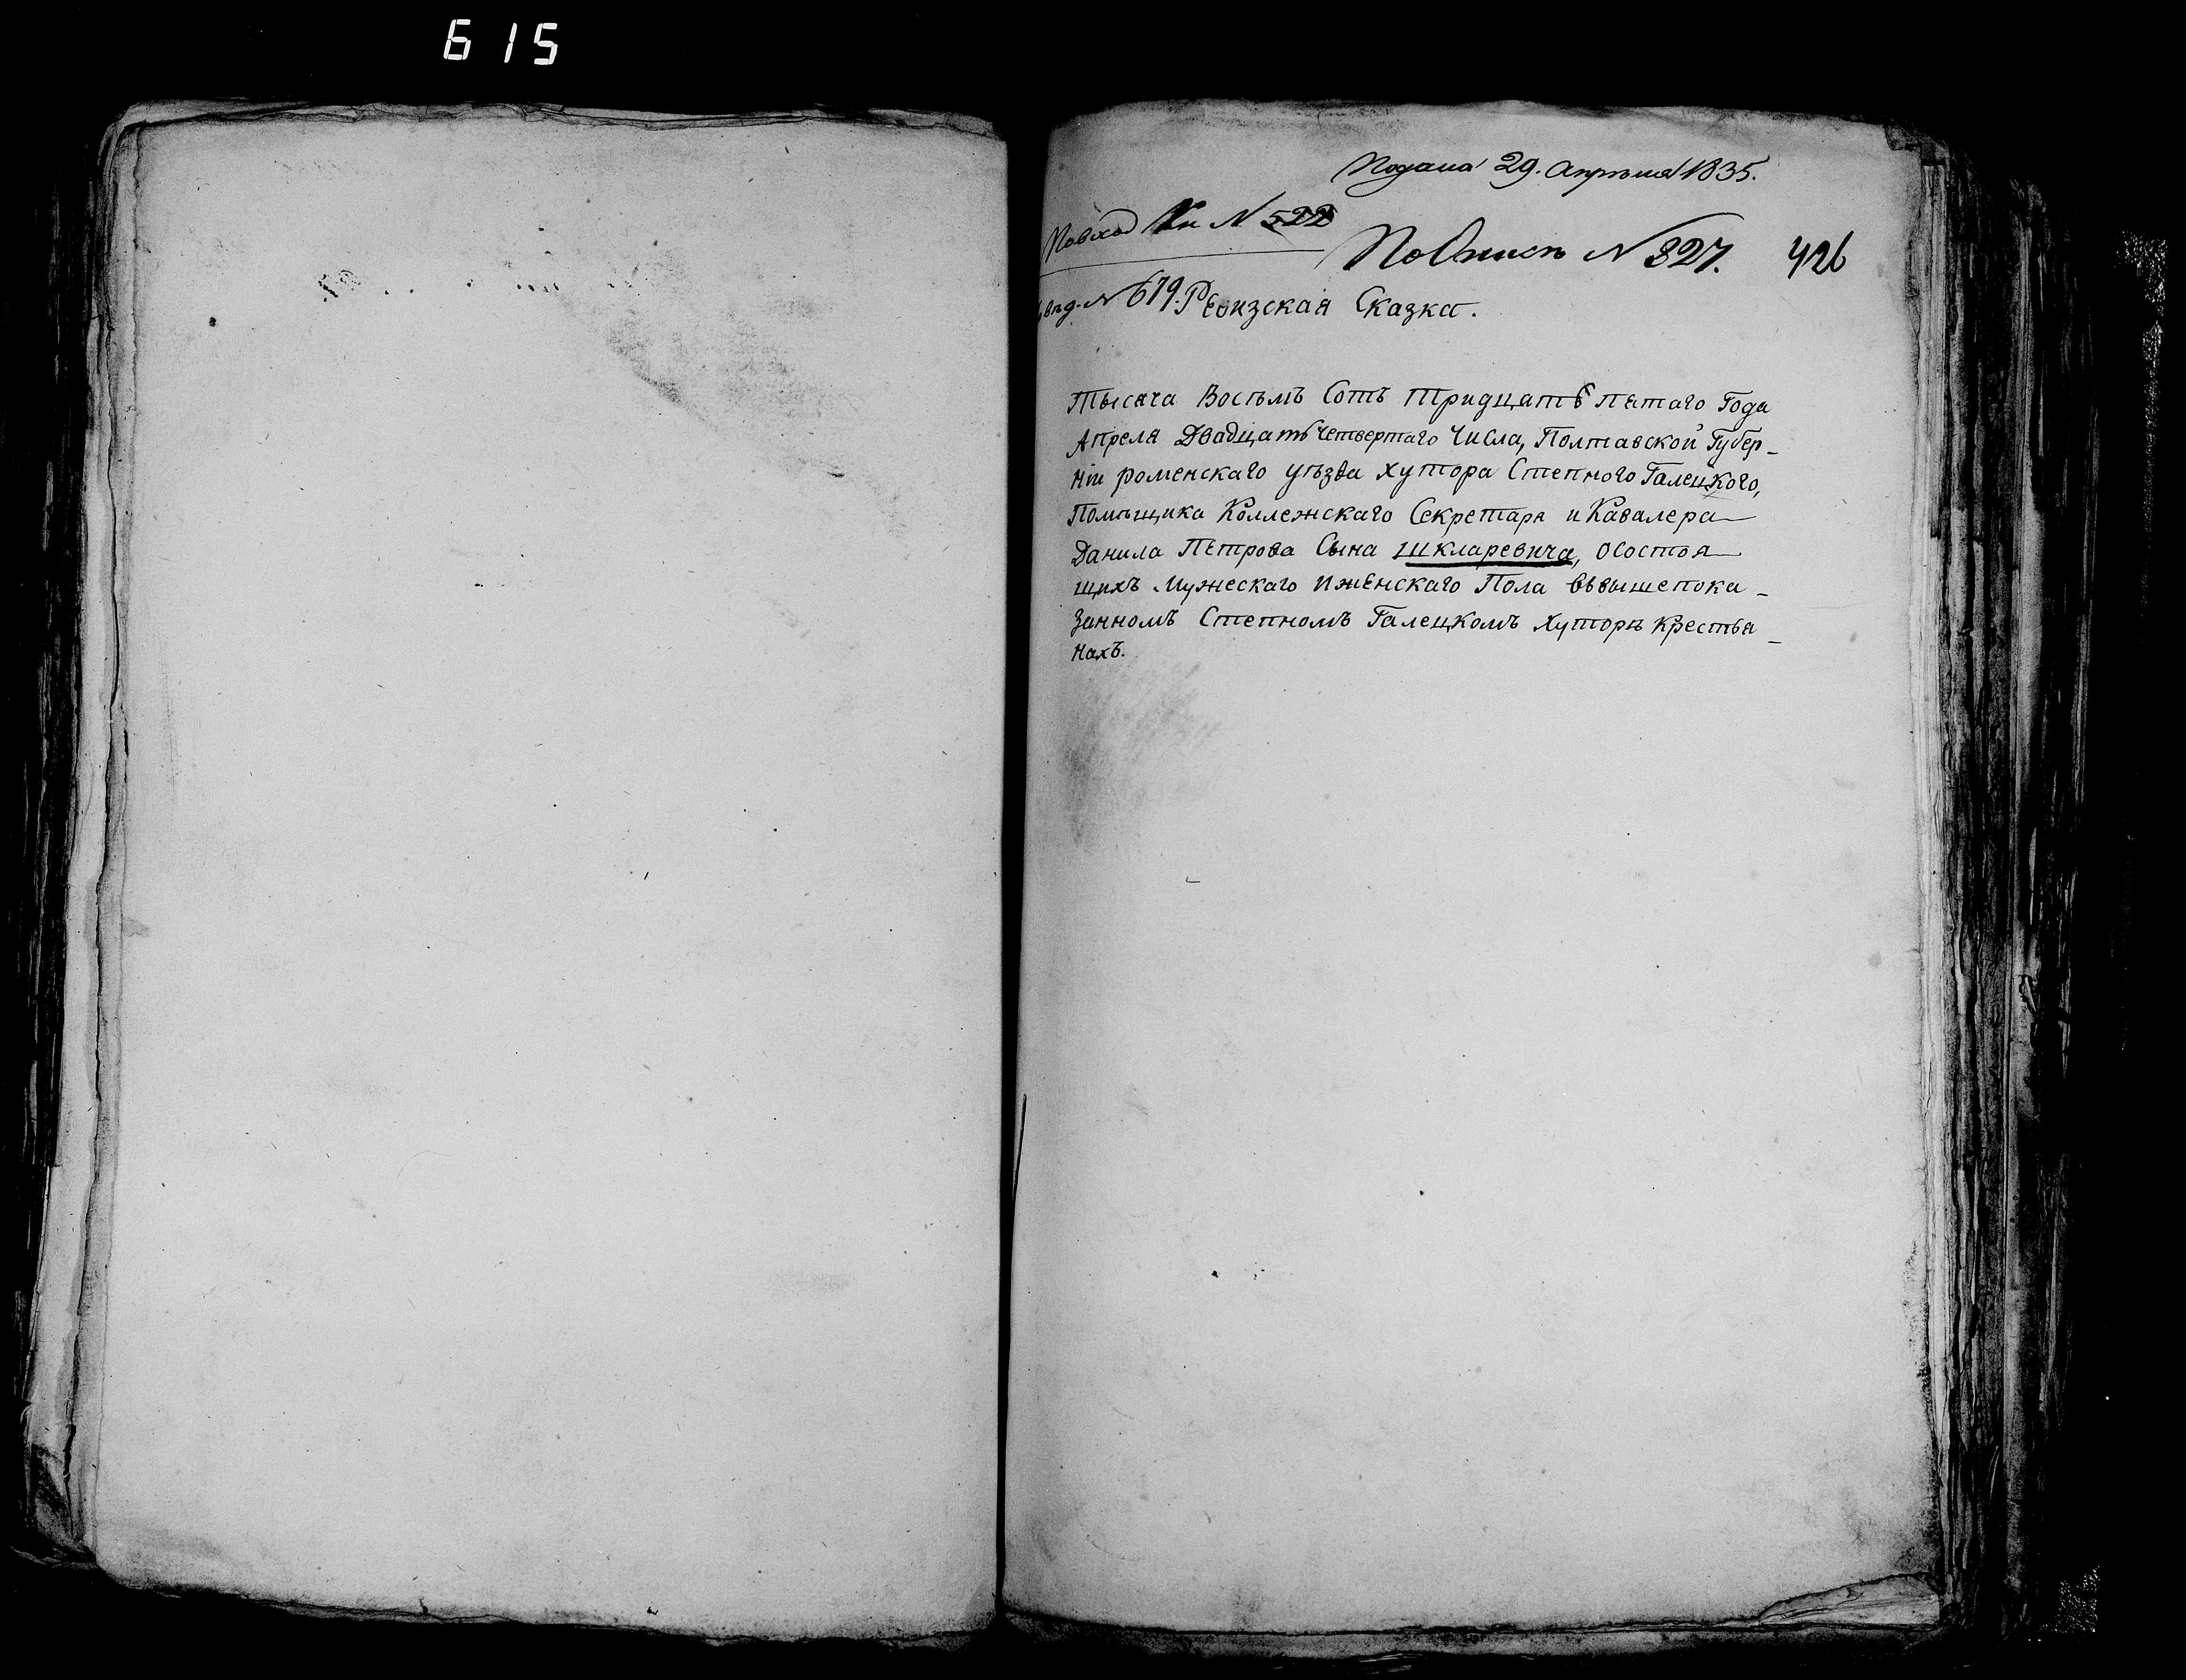 615
Подана 29. Апрѣля 1835.
По вход Кн N 522
По Описи N 327. 426
вѣд. N 679. Ревизская Сказка.
Тысяча Восѣмъ Сотъ Тридцатъ пятаго Года
Апреля Двадцатъ Четвертаго Числа, Полтавской Губер-
нiи роменскаго уѣзда хутора Степного Галецкого,
Помѣщика Коллежскаго Секретаря и Кавалера
Данила Петрова Сына Шкларевича, О Состоя
щихъ Мужескаго и женскаго Пола ввышепока-
занномъ Степномъ Галецкомъ Хуторѣ крестья-
нахъ.